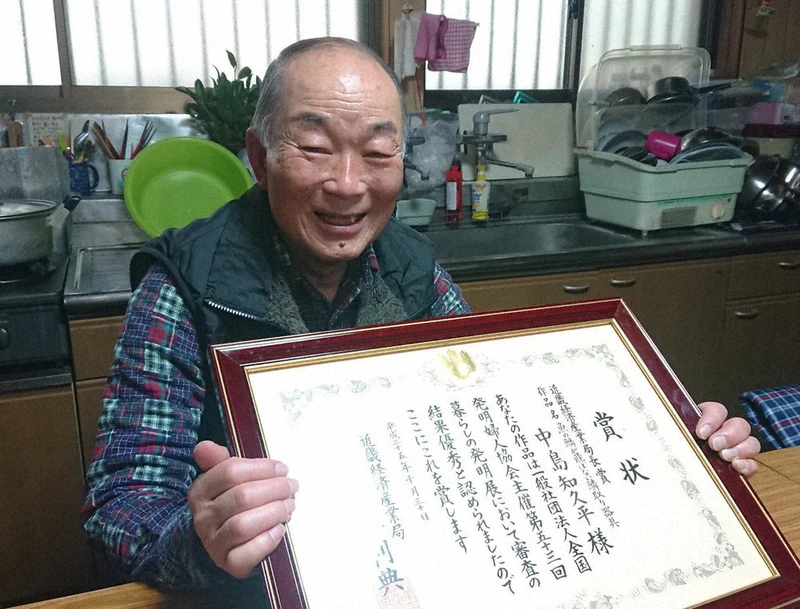 賞状
近畿経済産業局長賞
作品名 魚の鱗
取り器具
中島知久平様
あなたの作品は一般社団法人全国
発明婦人協会主催第五十三回
暮らしの発明展において審査の
結果優秀と認められましたので
ここにこれを賞します
平成二十五年十月三十日
近畿経済産業局
川典